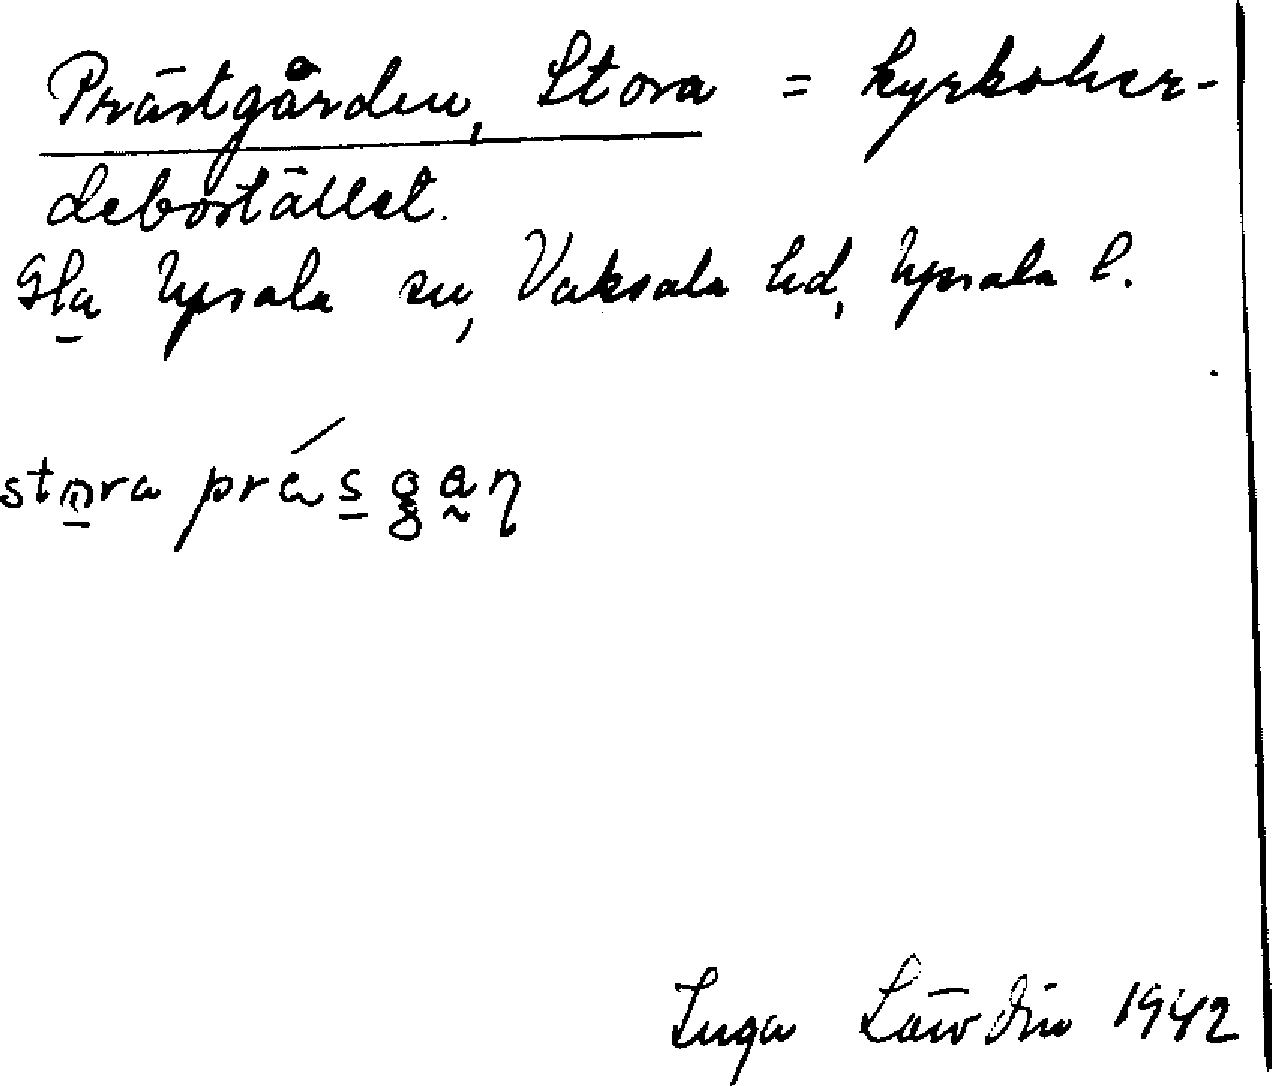 Prästgården, Stora = kyrkoher-
debostället.
Gla Upsala sn, Vaksala hd, Upsala l.
stora präsgan
Inga 1942